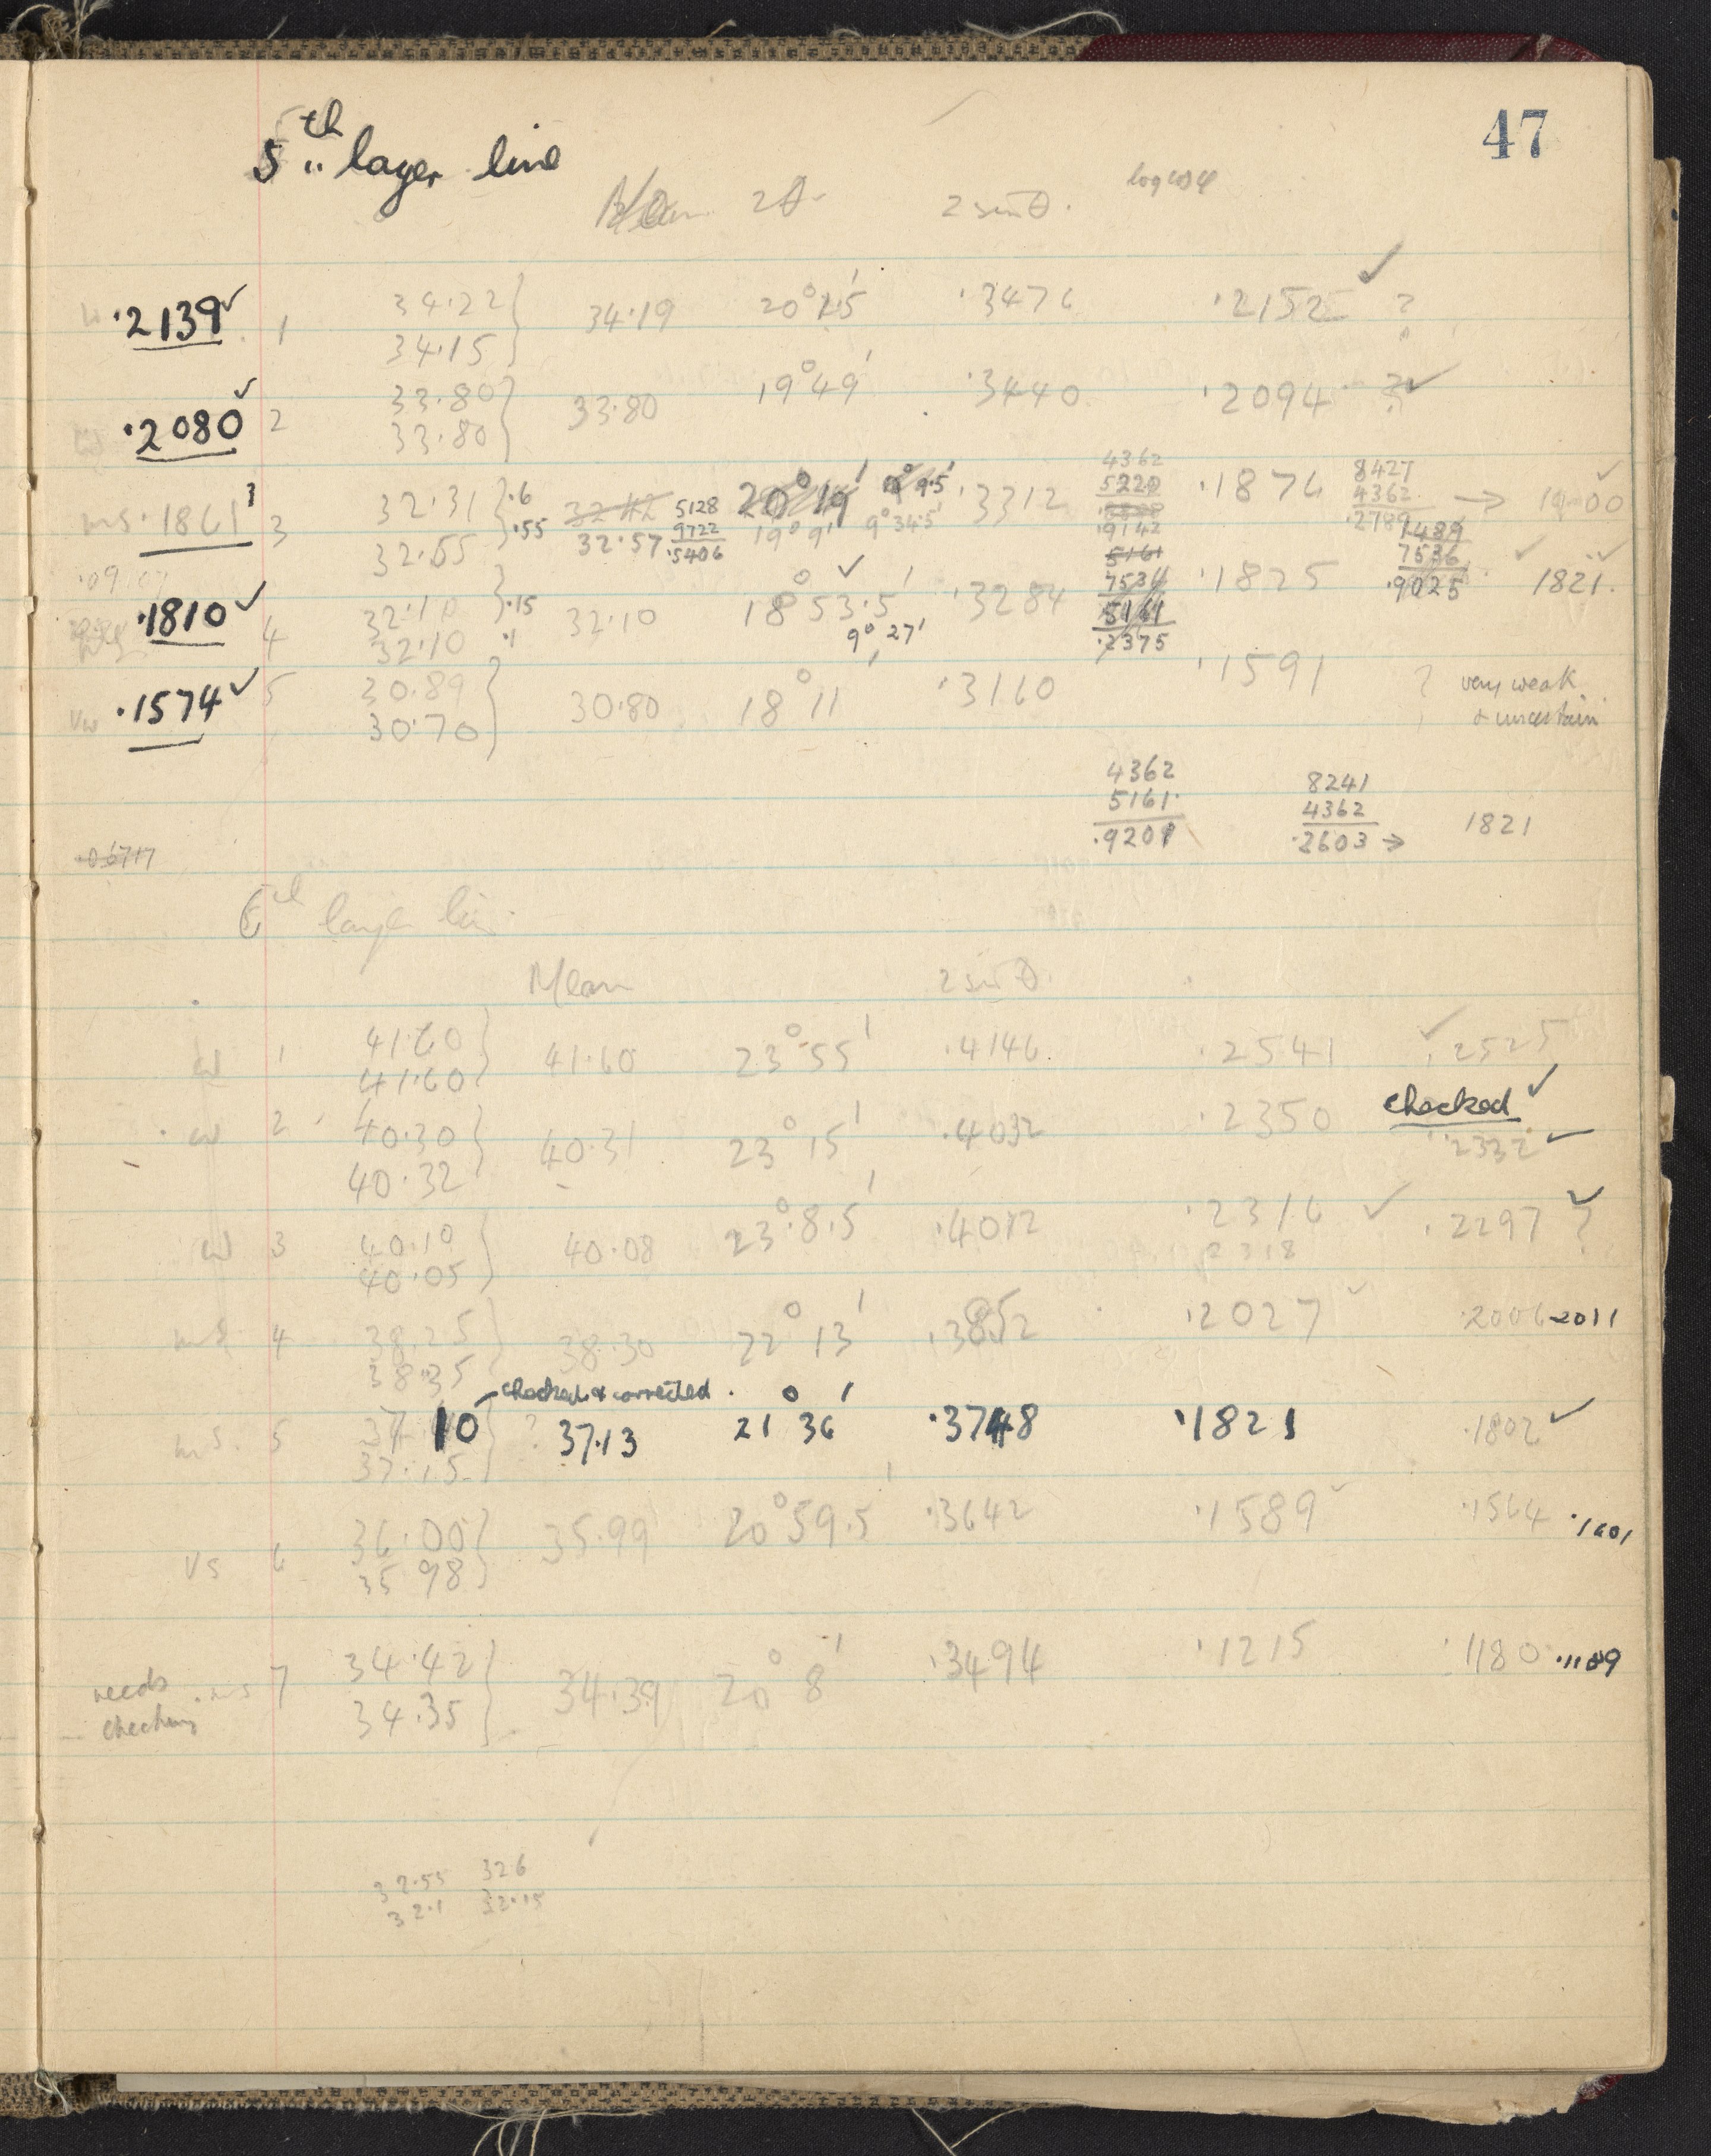 47
5th layer line
Mean 2θ 2 sinθ. log cos φ
w ·2139 ✓ 1 34·22 } 34·19 20° 2·5' ·3476 ·2152 ✓ ?
34·15
·2080 ✓ 2 33·80 } 33·80 19° 49' ·3440 ·2094 ? ✓
33·80
ms ·1861 3 3 32·31 } ·6 32·42 5128 20° 19' 9·5' ·3312 4362 ·1876 8427 → 1900 ✓
32·55 ·55 32·57 9722 19° 9' 9° 34·5' 5220 4362
·5406 ·9142 ·2789
·0907 5161 1489
·1810 ✓ 4 32·10 } ·15 32·10 18° 53·5' ✓ ·3284 7536 ·1825 7536 ✓ 1821. ✓
32·10 ·1 9° 27' 5161 ·9025
·2375
vw ·1574 ✓ 5 30·89 } 30·80 18° 11' ·3160 ·1591 ? very weak
30·70 & uncertain
4362 8241
5161 4362 1821
·9201 ·2603 →
·06717
6th layer line
Mean 2 sinθ.
w 1 41·60 } 41·60 23° 55' ·4146 ·2541 ✓ ·2525
41·60
w 2 40·30 } 40·31 23° 15' ·4032 ·2350 checked ✓
40·32 ·2332 ✓
w 3 40·10 } 40·08 23° 8·5' ·4012 ·2316 ✓ ·2297 ✓ ?
40·05 2318
ms 4 38·25 } 38·30 22° 13' ·3852 ·2027 ✓ ·2006 2011
38·35
checked & corrected
ms. 5 37 10 } ? 37·13 21° 36' ·3748 ·1821 ·1802 ✓
37·15
vs 6 36·00 } 35·99 20° 59·5' ·3642 ·1589 ✓ ·1564 ·1601
35 98
needs checking ms 7 34·42 } 34·39 20° 8' ·3494 ·1215 ·1180 ·1189
34·35
32·55 326
32·1 32·15